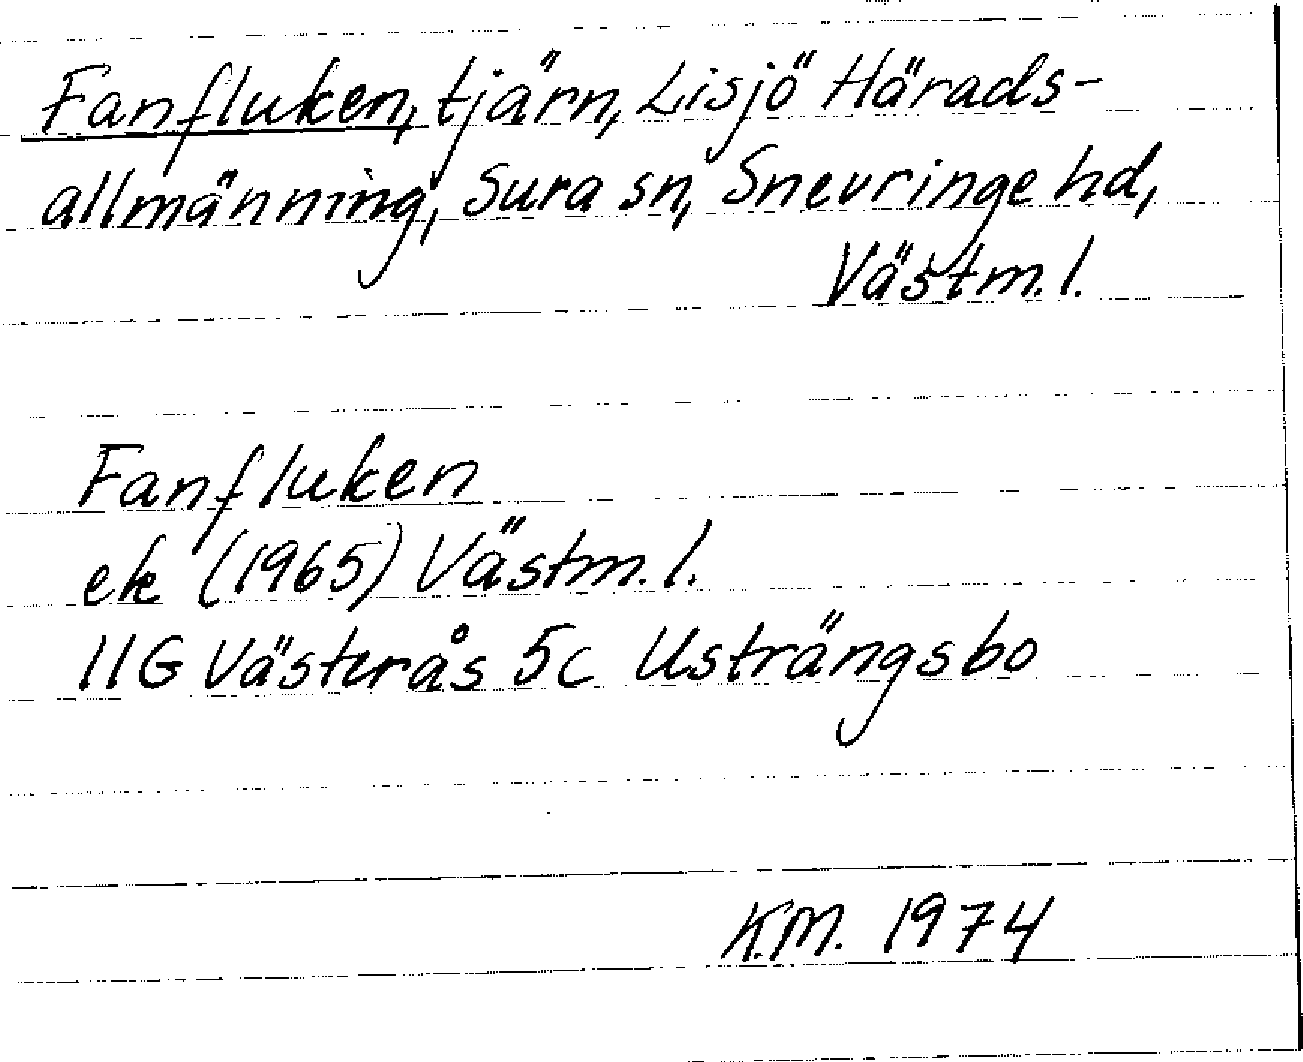 Fanfluken, tjärn, Lisjö Härads-
allmänning, Sura sn, Snevringe hd,
Västm. l.
Fanfluken
ek (1965) Västm. l.
11G Västerås 5c Usträngsbo
K.M. 1974